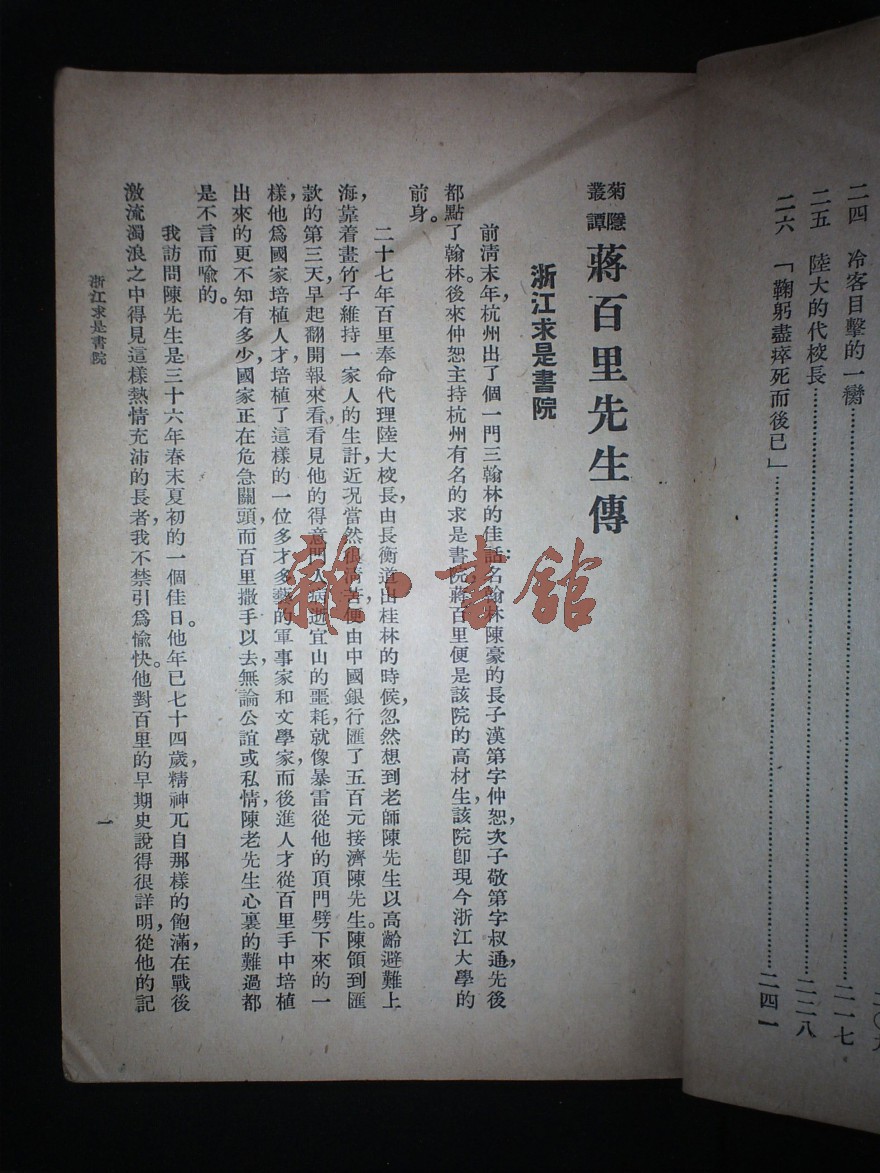 二四　冷客目擊的一幕
二五　陸大的代校長……二一七
二二八
二六　「鞠躬盡瘁死而後已」……二四一
菊隱
叢譚
蔣百里先生傳
浙江求是書院
前清末年，杭州出了個一門三翰林的佳話；名翰林陳豪的長子漢第字仲恕，次子敬第字叔通，先後
都點了翰林。後來仲恕主持杭州有名的求是書院，蔣百里便是該院的高材生，該院卽現今浙江大學的
前身。
二十七年百里奉命代理陸大校長，由長衡道出桂林的時候，忽然想到老師陳先生以高齡避難上
海，靠着畫竹子維持一家人的生計，近况當然很淸苦，便由中國銀行匯了五百元接濟陳先生。陳領到匯
款的第三天，早起翻開報來看，看見他的得意門人病逝宜山的噩耗，就像暴雷從他的頂門劈下來的一
樣，他爲國家培植人才，培植了這樣的一位多才多藝的軍事家和文學家，而後進人才從百里手中培植
出來的更不知有多少，國家正在危急關頭，而百里撒手以去，無論公誼或私情，陳老先生心裏的難過都
是不言而喻的。
我訪問陳先生是三十六年春末夏初的一個佳日。他年已七十四歲，精神兀自那樣的飽滿，在戰後
激流濁浪之中得見這樣熱情充沛的長者，我不禁引爲愉快。他對百里的早期史說得很詳明，從他的記
浙江求是書院
一
雜·書館